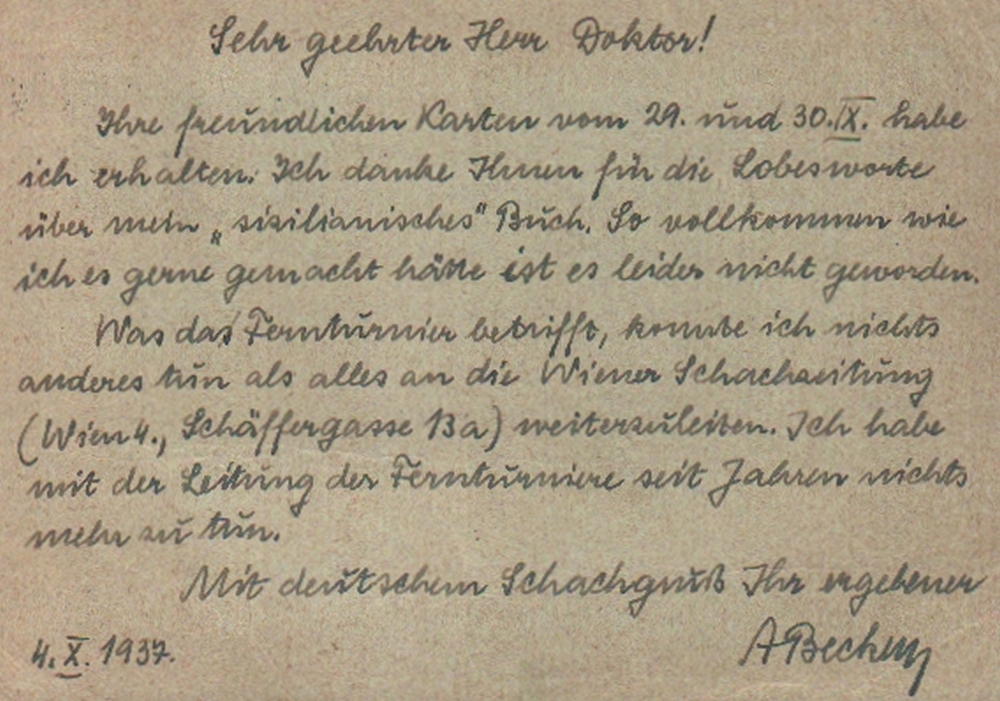 Sehr geehrter Herr Doktor!
Ihre freundlichen Karten vom 29. und 30.IX. habe
ich erhalten. Ich danke Ihnen für die Lobesworte
über mein „sizilianisches" Buch. So vollkommen wie
ich es gerne gemacht hätte ist es leider nicht geworden.
Was das Fernturnier betrifft, konnte ich nichts
anderes tun als alles an die Wiener Schachzeitung
(Wien 4., Schäffergasse 13a) weiterzuleiten. Ich habe
mit der Leitung der Fernturniere seit Jahren nichts
mehr zu tun.
Mit deutschem Schachgruß Ihr ergebener
4. X. 1937. A Becker